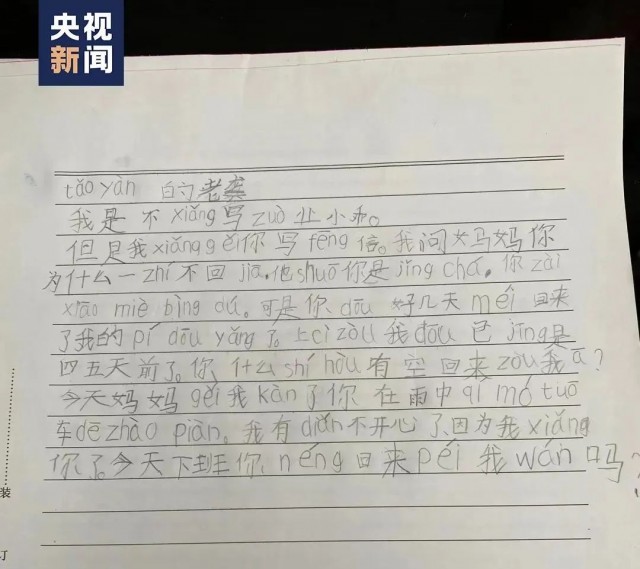 央视
新闻
tǎo yàn 的老龚
我是不xiǎng写zuò业小和。
但是我xiǎng gěi你写fēng信。我问妈妈你
为什么一zhí不回jiā,他shuō你是jǐng chá,你zài
xiāo miè bìng dú。可是你dōu好几天méi回来
了我的pí dōu yǎng了。上cì zòu我dōu已jīng是
四五天前了。你什么shí hòu有空回来zòu我ā?
今天妈妈gěi我kàn了你在雨中qí mó tuō
车de zhào piàn。我有diǎn不开心了因为我xiǎng
你了。今天下班你néng回来péi我wán吗?
装
订